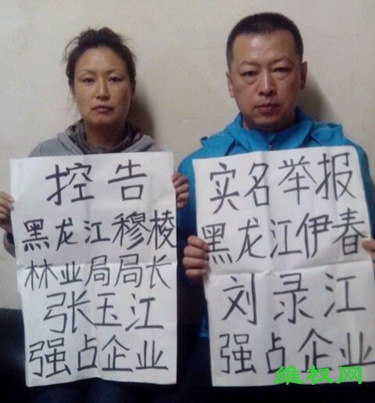 控告
黑龙江穆棱
林业局局长
张玉江
强占企业
实名举报
黑龙江伊春
刘录江
强占企业
维权网